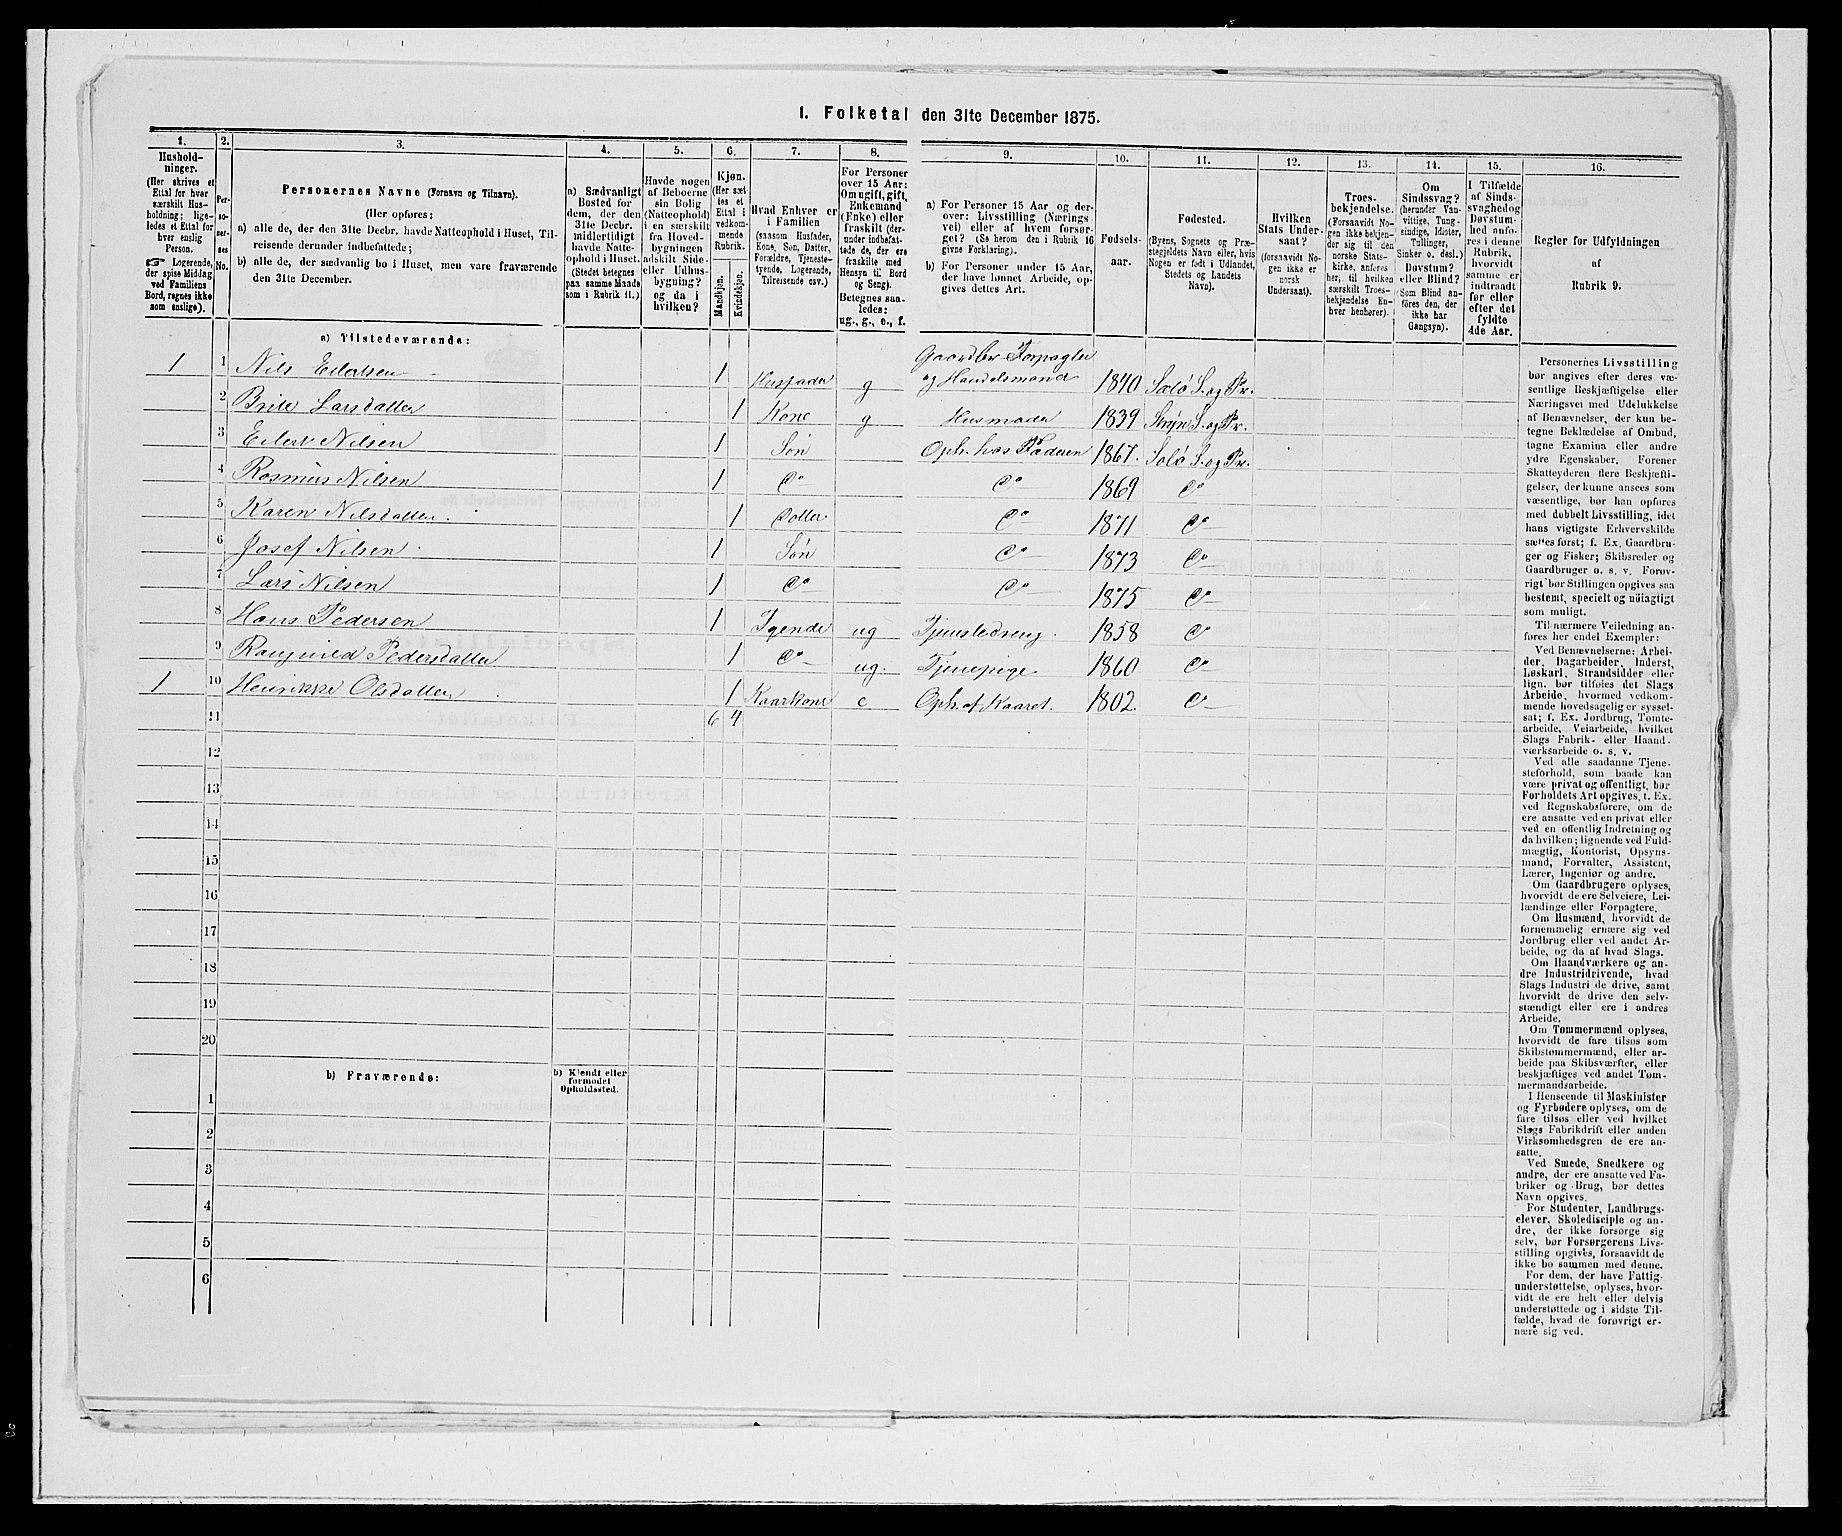 1. Folketal den 31te December 1875.
1. 2. 3. 4. 5. 6. 7. 8. 9. 10. 11. 12. 13. 14. 15. 16.
Hushold-
ninger.
(Her skrives et
Ettal for hver
særskilt Hus-
holdning; lige-
ledes et Ettal for
hver enslig
Person.
☞ Logerende,
der spise Middag
ved Familiens
Bord, regnes ikke
som enslige).
Per-
so-
ner-
nes
No.
Personernes Navne (Fornavn og Tilnavn).
(Her opføres:
a) alle de, der den 31te Decbr. havde Natteophold i Huset, Til-
reisende derunder indbefattede;
b) alle de, der sædvanlig bo i Huset, men vare fraværende
den 31te December.
a) Sædvanligt
Bosted for
dem, der den
31te Decbr.
midlertidigt
havde Natte-
ophold i Huset.
(Stedet betegnes
paa samme Maade
som i Rubrik 11.)
Havde nogen
af Beboerne
sin Bolig
(Natteophold)
i en særskilt
fra Hoved-
bygningen
adskilt Side-
eller Udhus-
bygning?
og da i
hvilken?
Kjøn.
(Her sæt-
tes et
Ettal i
vedkom-
mende
Rubrik.
Mandkjøn.
Kvindekjøn.
Hvad Enhver er
i Familien
(saasom Husfader,
Kone, Søn, Datter,
Forældre, Tjeneste-
tyende, Logerende,
Tilreisende osv.)
For Personer
over 15 Aar:
Om ugift, gift,
Enkemand
(Enke) eller
fraskilt (der-
under indbefat-
tede de, der ere
fraskilte med
Hensyn til Bord
og Seng).
Betegnes saa-
ledes:
ug., g., e., f.
a) For Personer 15 Aar og der-
over: Livsstilling (Nærings-
vei) eller af hvem forsør-
get? (Se herom den i Rubrik 16
givne Forklaring).
b) For Personer under 15 Aar,
der have lønnet Arbeide, op-
gives dettes Art.
Fødsels-
aar.
Fødested.
(Byens, Sognets og Præ-
stegjeldets Navn eller, hvis
Nogen er født i Udlandet,
Stedets og Landets
Navn).
Hvilken
Stats Under-
saat?
(forsaavidt No-
gen ikke er
norsk
Undersaat).
Troes-
bekjendelse.
(Forsaavidt No-
gen ikke bekjen-
der sig til den
norske Stats-
kirke, anføres
her, til hvilken
særskilt Troes-
bekjendelse En-
hver henhører).
Om
Sindssvag?
(herunder Van-
vittige, Tung-
sindige, Idioter,
Tullinger,
Sinker o. desl.)
Døvstum?
eller Blind?
(Som Blind an-
føres den, der
ikke har
Gangsyn).
I Tilfælde
af Sinds-
svaghed og
Døvstum-
hed anfø-
res i denne
Rubrik,
hvorvidt
samme er
indtraadt
før eller
efter det
fyldte
4de Aar.
Regler for Udfyldningen
af
Rubrik 9.
a) Tilstedeværende:
1 1 Nils Eilertsen 1 Husfader g Gaardbr. Forpagter og Handelsmand 1840 Selö S. og Pr.
2 Brite Larsdatter 1 Kone g Husmoder 1839 Stryn S. og Pr.
3 Eilert Nilsen 1 Søn Oph. hos Faderen 1867. Selö S. og Pr.
4 Rasmus Nilsen 1 do do 1869 do
5 Karen Nilsdatter 1 Datter do 1871 do
6 Josef Nilsen 1 Søn do 1873 do
7 Lars Nilsen 1 do do 1875 do
8 Hans Pedersen 1 Tyende ug Tjenestedreng. 1858 do
9 Rangnild Pedersdatter 1 do ug. Tjenepige 1860 do
1 10 Henrikke Olsdatter 1 Kaarkone e Oph. af Kaaret. 1802. do
11 6 4
12
13
14
15
16
17
18
19
20
b) Fraværende:
b) Kjendt eller
formodet
Opholdssted.
1
2
3
4
5
6
Personernes Livsstilling
bør angives efter deres væ-
sentlige Beskjæftigelse eller
Næringsvei med Udelukkelse
af Benævnelser, der kun be-
tegne Beklædelse af Ombud,
tagne Examina eller andre
ydre Egenskaber. Forener
Skatteyderen flere Beskjæfti-
gelser, der kunne ansees som
væsentlige, bør han opføres
med dobbelt Livsstilling, idet
hans vigtigste Erhvervskilde
sættes først; f. Ex. Gaardbru-
ger og Fisker; Skibsreder og
Gaardbruger o. s. v. Forøv-
rigt bør Stillingen opgives saa
bestemt, specielt og nøiagtigt
som muligt.
Til nærmere Veiledning an-
føres her endel Exempler:
Ved Benævnelserne: Arbei-
der, Dagarbeider, Inderst,
Løskarl, Strandsidder eller
lign. bør tilføies det Slags
Arbeide, hvormed vedkom-
mende hovedsagelig er syssel-
sat; f. Ex. Jordbrug, Tomte-
arbeide, Veiarbeide, hvilket
Slags Fabrik- eller Haand-
værksarbeide o. s. v.
Ved alle saadanne Tjene-
steforhold, som baade kan
være privat og offentligt, bør
Forholdets Art opgives, t. Ex.
ved Regnskabsførere, om de
ere ansatte ved en privat eller
ved en offentlig Indretning og
da hvilken; lignende ved Fuld-
mægtig, Kontorist, Opsyns-
mand, Forvalter, Assistent,
Lærer, Ingeniør og andre.
Om Gaardbrugere oplyses,
hvorvidt de ere Selveiere, Lei-
lændinge eller Forpagtere.
Om Husmænd, hvorvidt de
fornemmelig ernære sig ved
Jordbrug eller ved andet Ar-
beide, og da af hvad Slags.
Om Haandværkere og an-
dre Industridrivende, hvad
Slags Industri de drive, samt
hvorvidt de drive den selv-
stændigt eller ere i andres
Arbeide.
Om Tømmermænd oplyses,
hvorvidt de fare tilsøs som
Skibstømmermænd, eller ar-
beide paa Skibsværfter, eller
beskjæftiges ved andet Tøm-
mermandsarbeide.
I Henseende til Maskinister
og Fyrbødere oplyses, om de
fare tilsøs eller ved hvilket
Slags Fabrikdrift eller anden
Virksomhedsgren de ere an-
satte.
Ved Smede, Snedkere og
andre, der ere ansatte ved Fa-
briker og Brug, bør dettes
Navn opgives.
For Studenter, Landbrugs-
elever, Skoledisciple og an-
dre, der ikke forsørge sig
selv, bør Forsørgerens Livs-
stilling opgives, forsaavidt de
ikke bo sammen med denne.
For dem, der have Fattig-
understøttelse, oplyses, hvor-
vidt de ere helt eller delvis
understøttede og i sidste Til-
fælde, hvad de forøvrigt er-
nære sig ved.